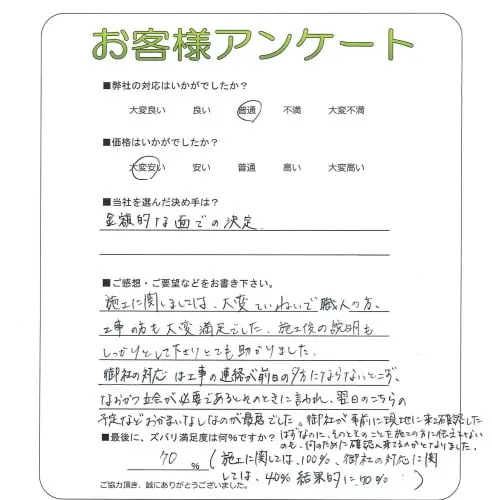 お客様アンケート
■弊社の対応はいかがでしたか？
大変良い 良い 普通 不満 大変不満
■価格はいかがでしたか？
大変安い 安い 普通 高い 大変高い
■当社を選んだ決め手は？
金額的な面での決定.
■ご感想・ご要望などをお書き下さい。
施工に関しましては、大変ていねいで職人の方、
工事の方も大変満足でした。施工後の説明も
しっかりとして下さりとても助かりました。
御社の対応は工事の連絡が前日の夕方にならないとこず、
なおかつ立会が必要であるとそのときに言われ、翌日のこちらの
予定などおかまいなしなのが最悪でした。御社が事前に現地に来て確認した
はずなのに、そのときのことを施工の方に伝えてない
のも、何のために確認に来てるのかとなりました。
■最後に、ズバリ満足度は何%ですか？
70 %
(施工に関しては、100%、御社の対応に関
しては、40% 結果的に70%)
ご協力頂き、誠にありがとうございました。